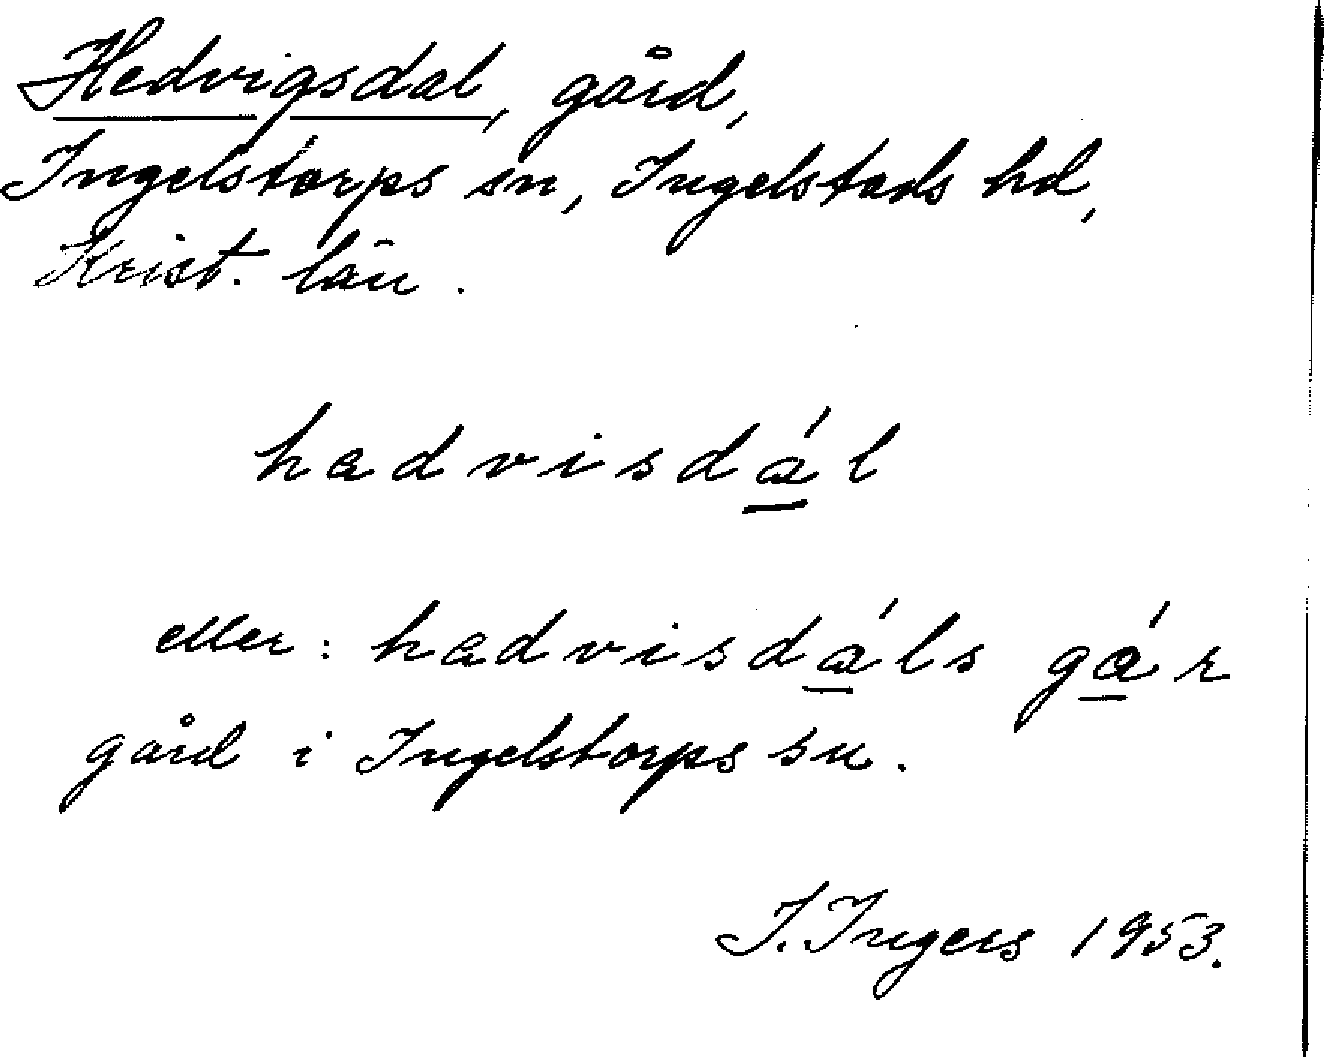 Hedvigsdal, gård,
Ingelstorps sn, Ingelstads hd,
Krist. län.
hadvisdál
eller: hadvisdáls gár
gård i Ingelstorps sn.
I. Ingers 1953.